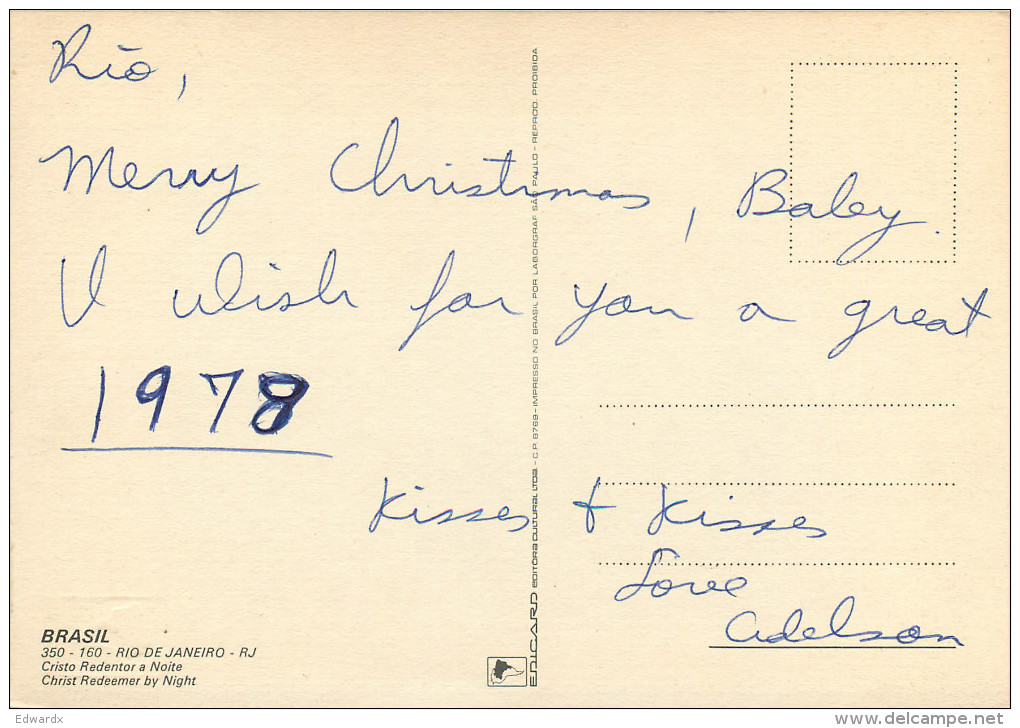 Rio,
Merry Christmas, Baley.
I wish for you a great
1978
Kisses + Kisses
Love
Adelson
BRASIL
350 - 160 - RIO DE JANEIRO - RJ
Cristo Redentor a Noite
Christ Redeemer by Night
ERICARD EDITORA CULTURAL LTDA. - C.P. 8769 - IMPRESSO NO BRASIL POR LABORGRAF SÃO PAULO - REPROD. PROIBIDA
Edwardx
www.delcampe.net